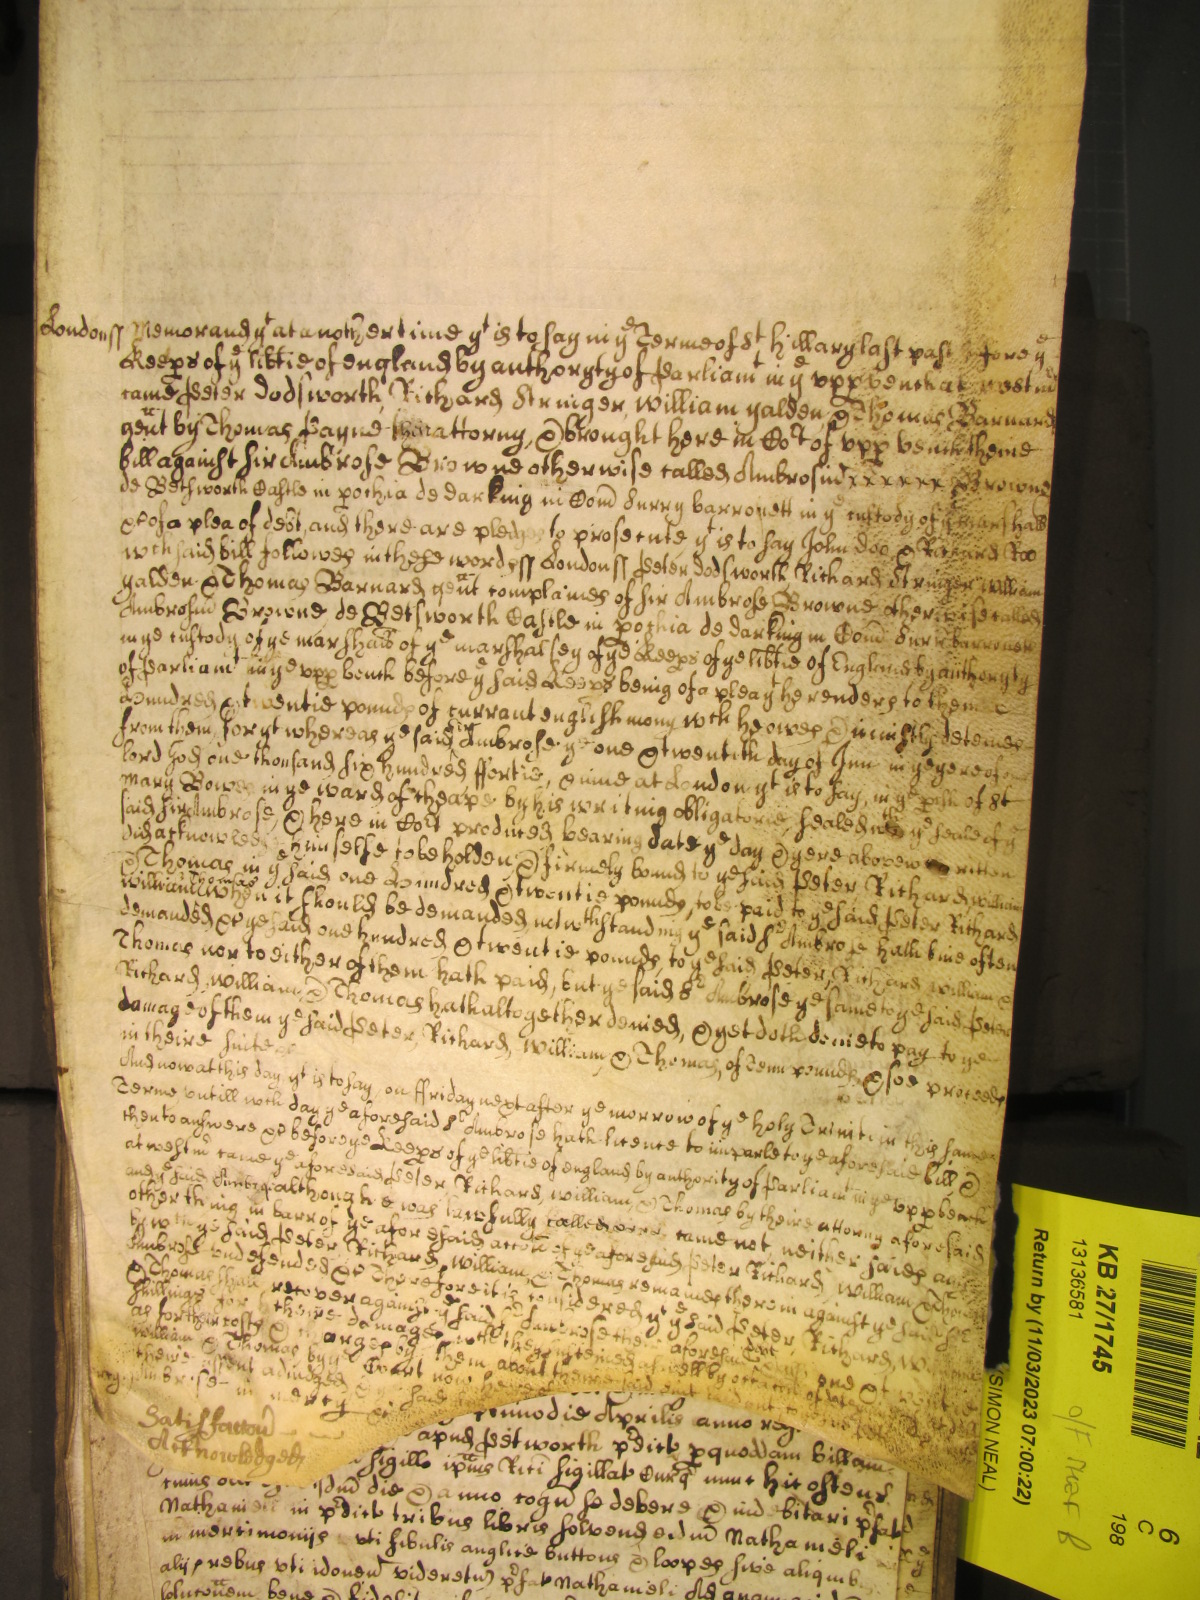 Londonss Memorand yt at another time yt is to say in ye Terme of St Hillary last past before ye
Keeps of ye libtie of england by authoryty of Parliamt in ye vpp bench at westmr
came Peeter Dodsworth, Richard Stringer, William yalden, & Thomas Barnard
gent by Thomas Payne their attorny, & brought here in Cort of vpp bench theire
bill against Sir Ambrose Browne otherwise called Ambrosiu Browne
de Betsworth Castle in pochia de darking in Com Surry barronett in ye custody of ye marshall
&c of a plea of debt, and there are pledges to prosecute yt is to say John Doo & Richard Roo
wch said bill followes in these wordes ss Londonss Peeter Dodsworth Richard Stringer William
yalden & Thomas Barnard gent complaines of Sir Ambrose Browne otherwise called
Ambrosiu Browne de Betsworth Castle in pochia de darking in Com Surry barronett
in ye custody of ye marshall of ye marshalsey of ye Keeps of ye libtie of England by authoryty
of Parliamt in ye vpp bench before ye said Keeps being of a plea yt he renders to them
hundred & twentie pounds of currant english mony wch he owes & iniustly deteines
from them, for yt whereas ye said Sir Ambrose ye one & twentith day of June in ye yere of our
lord god one thousand six hundred ffortie & nine at London yt is to say, in ye pish of St
Mary Bowes in ye ward of cheape by his writing obligatorie, sealed wth ye seale of ye
said Sir Ambrose, & here in Cort produced bearing date ye day & yere abovewritten
did acknowledge himselfe to be holden & firmely bound to ye said Peeter Richard William
& Thomas in ye said one hundred & twentie pounds, to be paid to ye said Peeter Richard
William & Thomas when it should be demanded notwthstanding ye said Sr Ambrose hath bine often
demanded &c ye said one hundred & twentie pounds, to ye said Peeter, Richard, William &
Thomas nor to either of them hath paid, but ye said Sr Ambrose ye same to ye said Peeter
Richard, William, & Thomas hath altogether denied, & yet doth denie to pay to ye
damage of them ye said Peeter, Richard, William, & Thomas, of Tenn pounds, & soe proceeds
in theire suite &c
And now at this day yt is to say on ffriday next after ye morrow of ye holy Trinitie in this same
Terme vntill wch day ye aforesaid Sr Ambrose hath licence to imparle to ye aforesaid bill &
then to answere &c before ye Keeps of ye libtie of england by authority of Parliamt in ye vpp bench
at westmr came ye aforesaid Peeter Richard, William, & Thomas by theire attorny aforesaid
and ye said Ambrose although he was lawfully called came not, neither saies any
other thing in barr of ye aforesaid accon of ye aforesaid Peeter Richard, William & Thomas
by wch ye said Peeter Richard, William, & Thomas remaines therein against ye said Sr
Ambrose vndefended &c Therefore it is considered yt ye said Peeter Richard, William
& Thomas shall recover against ye said Sr Ambrose their aforesaid debt and
shillings for theire damages wch they susteined aswell by occasion of
as for their costs & charges by them about their said suit
William & Thomas by ye Court now here
their assent adiudged & ye said
Ambrose in mercy &c
Satisfaccon
Acknowledged
die Aprilis anno
apud Petworth pdict p quoddam billam
sigillo ipius Rici sigillat Curq nunc hic ostens
die & anno cogn se debere & indebitari pfat
Nathanieli in pdict tribus libris solvend eidm Nathanieli
in mercimonijs vti fibulis anglice buttons & loopes sive aliquib
alijs rebus vti idoneu videretur pfat Nathanieli
solucionem bene & fidelit
KB 271/1745
13136581
Return by (11/03/2023 07:00:22)
(SIMON NEAL)
6
C
198